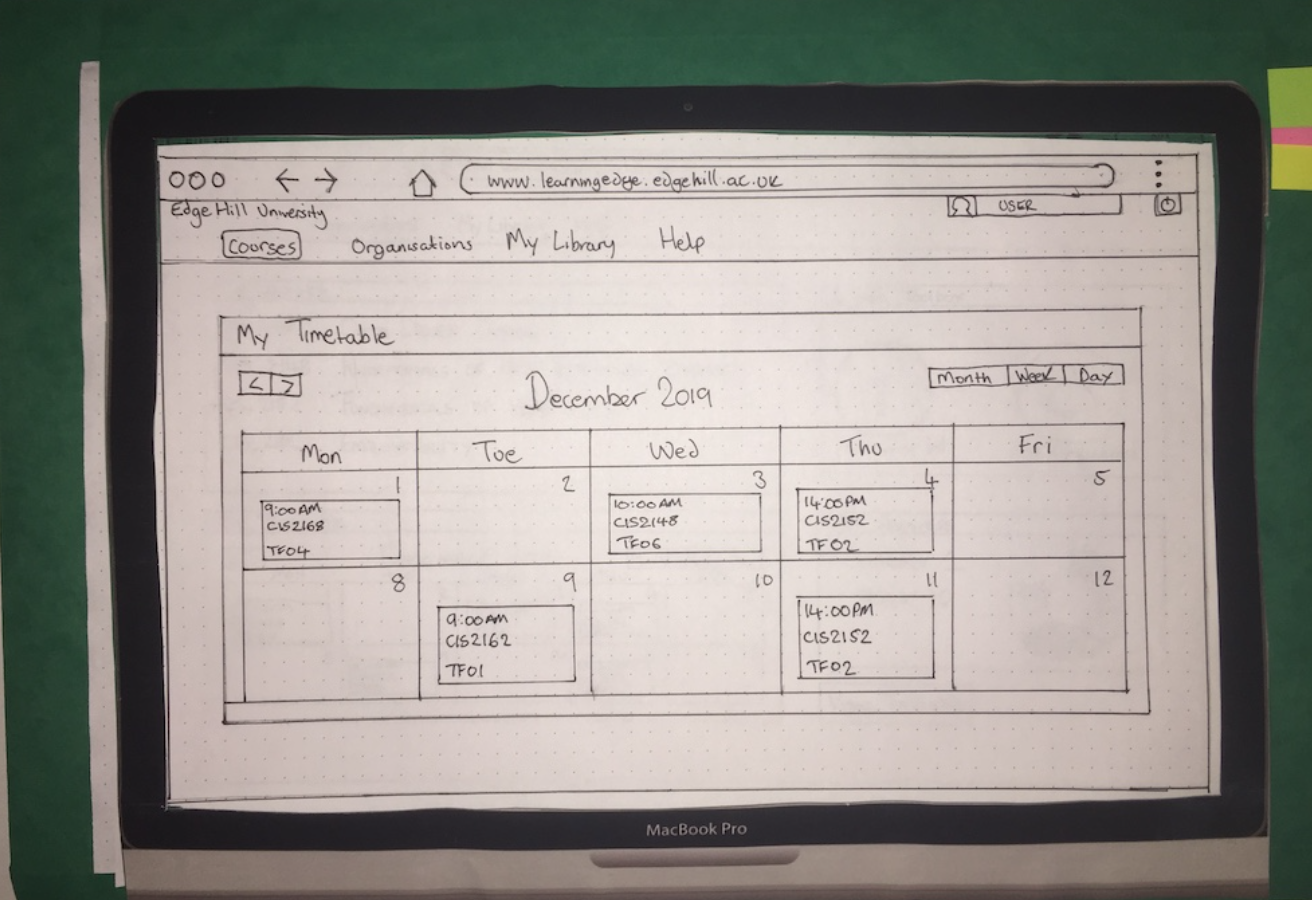 www.learningedge.edgehill.ac.uk
Edge Hill University
USER
Courses Organisations My Library Help
My Timetable
< >
December 2019
Month Week Day
Mon Tue Wed Thu Fri
1 2 3 4 5
9:00AM
CIS2168
TF04
10:00AM
CIS2148
TF06
14:00PM
CIS2152
TF02
8 9 10 11 12
9:00AM
CIS2162
TF01
14:00PM
CIS2152
TF02
MacBook Pro